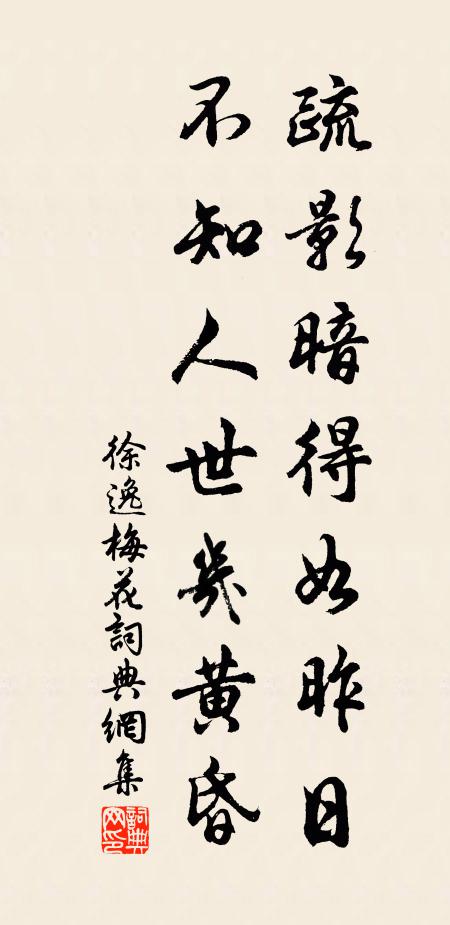 疏影暗得如昨日
不知人世幾黃昏
徐逸梅花詞典網集
詞典網印